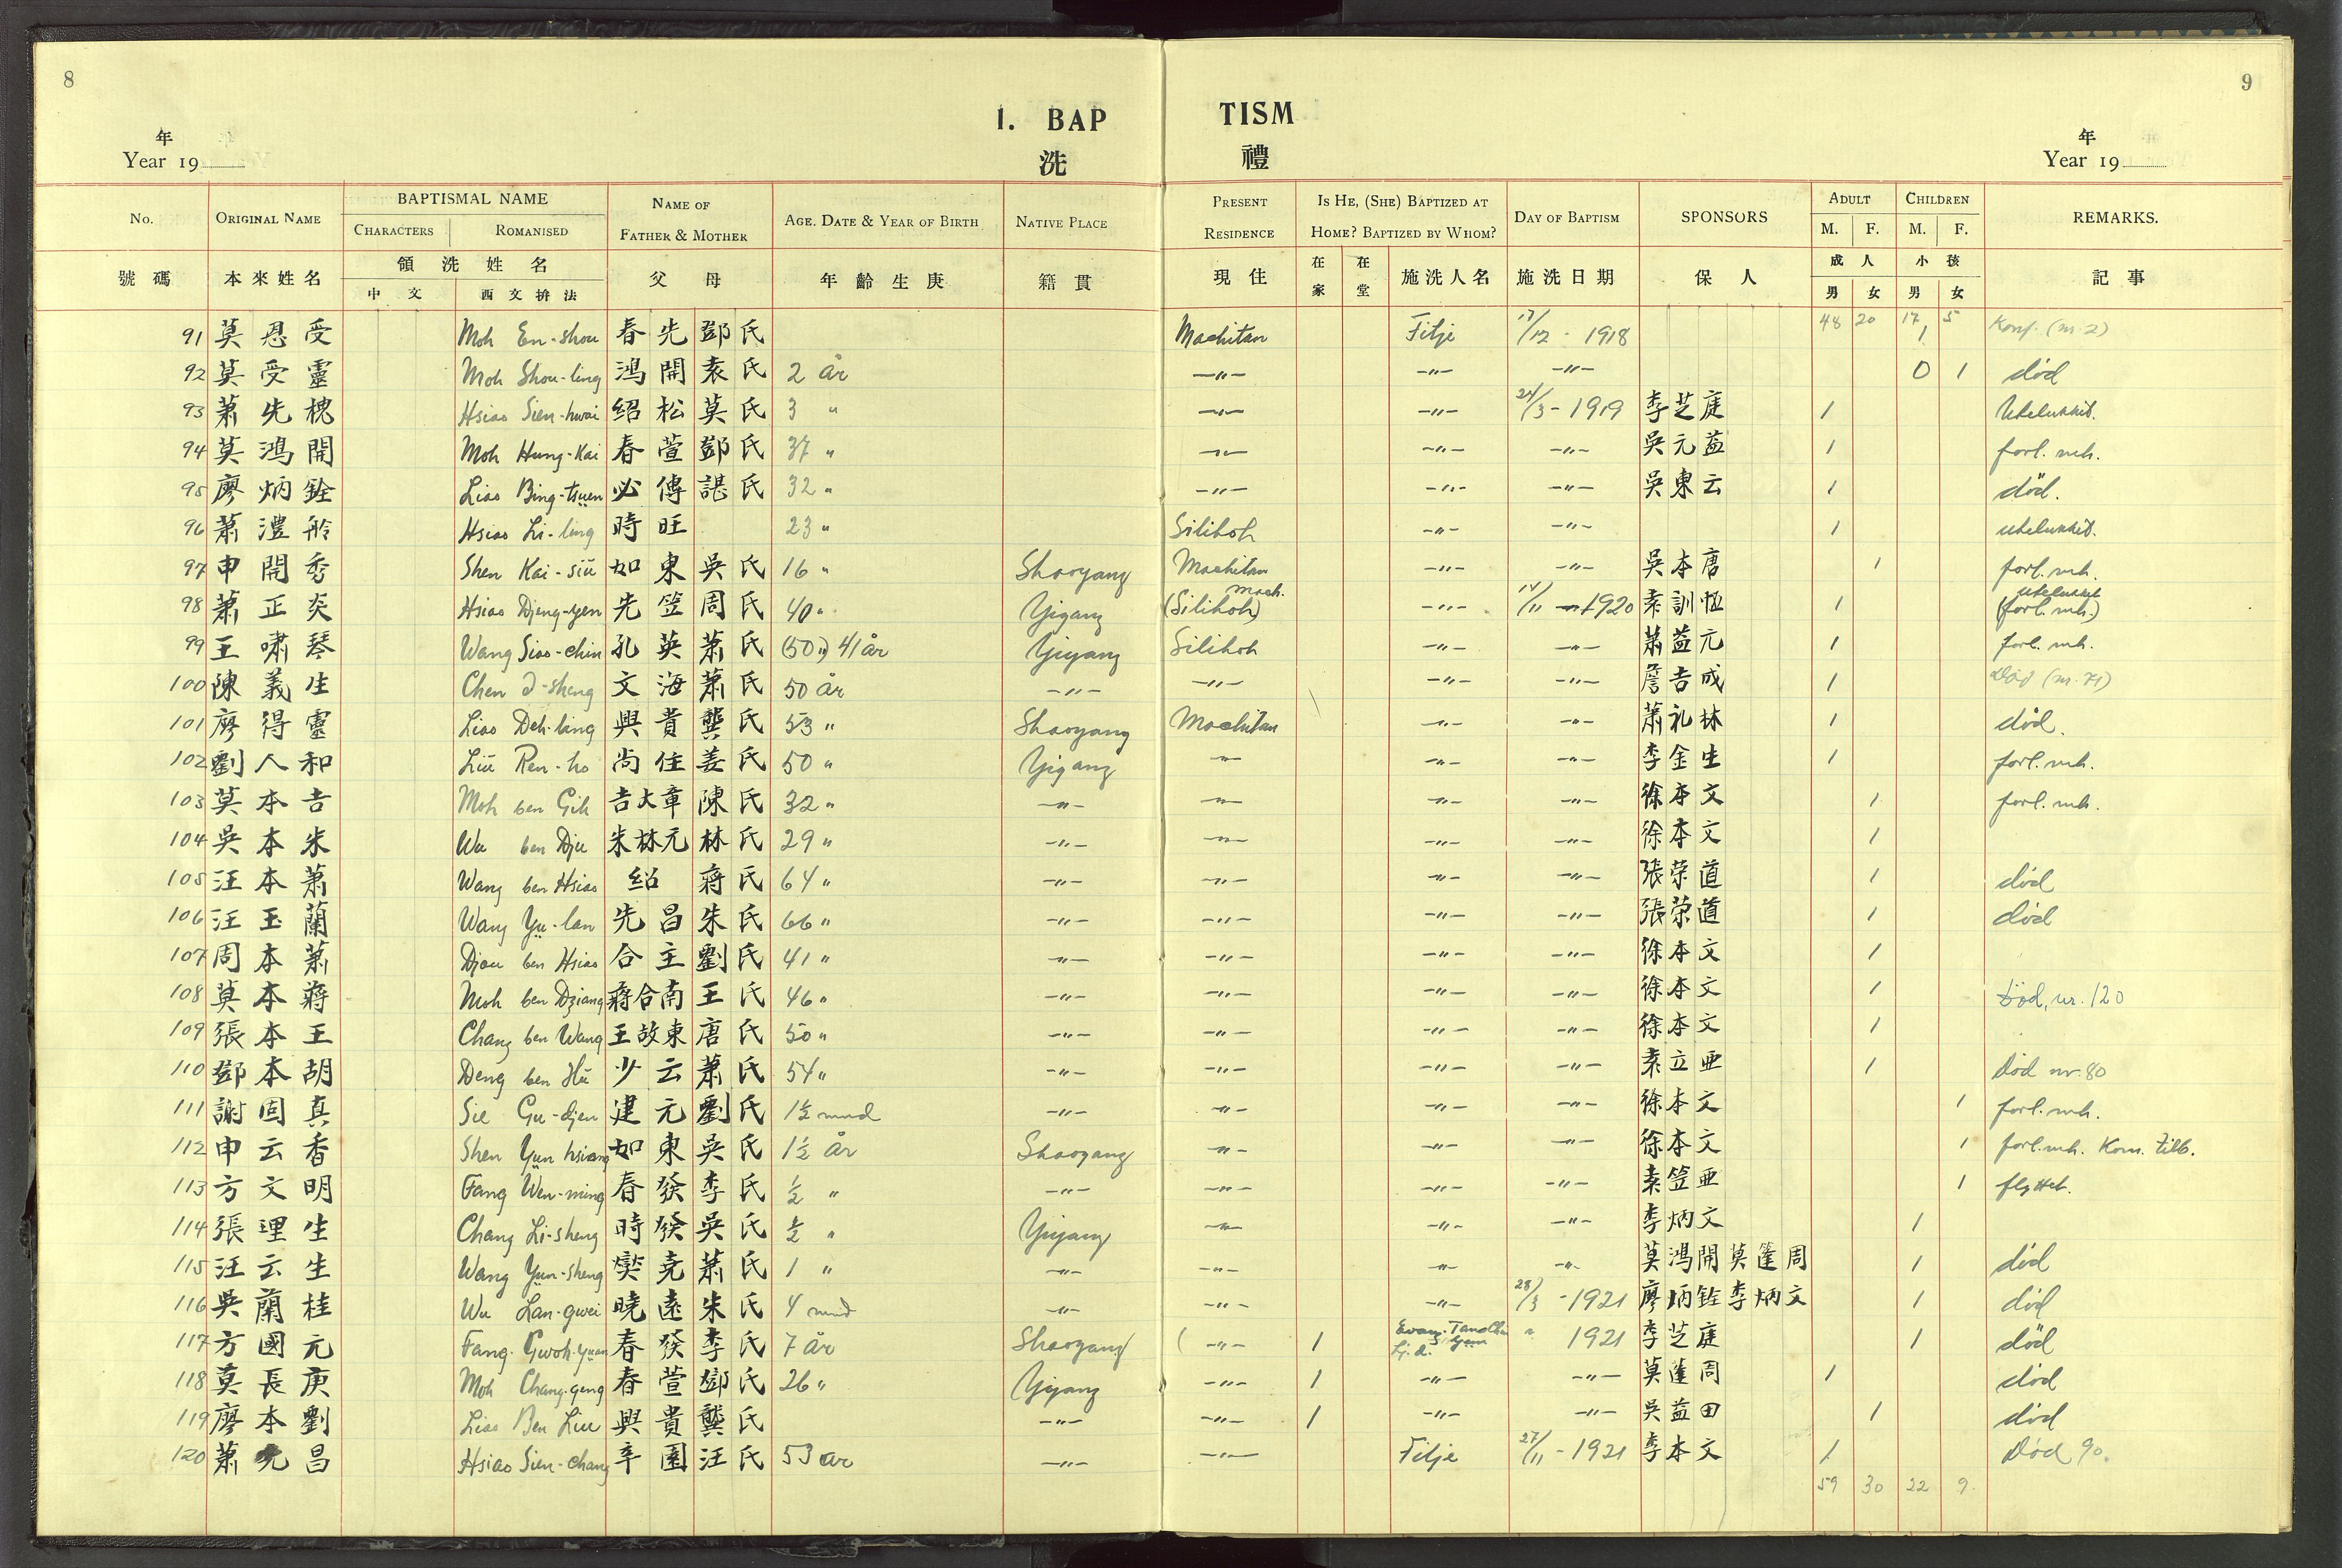 8
9
I. BAP
TISM
洗
禮
年
Year 19
年
Year 19
No. ORIGINAL NAME BAPTISMAL NAME NAME OF FATHER & MOTHER AGE. DATE & YEAR OF BIRTH NATIVE PLACE PRESENT RESIDENCE IS HE, (SHE) BAPTIZED AT HOME? BAPTIZED BY WHOM? DAY OF BAPTISM SPONSORS ADULT CHILDREN REMARKS.
CHARACTERS ROMANISED M. F. M. F.
號碼 本來姓名 領洗姓名 父母 年齡生庚 籍貫 現住 在家 在堂 施洗人名 施洗日期 保人 成人 小孩 記事
中文 西文拚法 男 女 男 女
48 20 17 5
91 莫恩受 Moh En-shou 春先 鄧氏 Machitan Filje 17/12 - 1918 1 Konf. (nr. 2)
92 莫受靈 Moh Shou-ling 鴻開 袁氏 2 år —〃— —〃— —〃— 0 1 död
93 萧先槐 Hsiao Sien-hwai 绍松 莫氏 3 〃 —〃— —〃— 24/3 - 1919 李芝庭 1 Utelukkit.
94 莫鴻開 Moh Hung-Kai 春萱 鄧氏 37 〃 —〃— —〃— —〃— 吳元益 1 forl. mh.
95 廖炳銓 Liao Bing-tsuen 必傳 諶氏 32 〃 —〃— —〃— —〃— 吳東云 1 död.
96 萧澧舲 Hsiao Li-ling 時旺 23 〃 Silikoh —〃— —〃— 1 utelukkit.
97 申開秀 Shen Kai-siü 如東 吳氏 16 〃 Shaoyang Machitan —〃— —〃— 吳本唐 1 forl. mh.
98 萧正炎 Hsiao Djeng-yen 先笠 周氏 40 〃 Yiyang (Silikoh) Mach. —〃— 14/11 - 1920 袁訓恆 1 utelukkit (forl. mh.)
99 王啸琴 Wang Siao-chin 孔英 萧氏 (50〃) 41 år Yiyang Silikoh —〃— —〃— 萧益元 1 forl. mh.
100 陳義生 Chen I-sheng 文海 萧氏 50 år —〃— —〃— —〃— —〃— 詹吉成 1 Död (nr. 71)
101 廖得靈 Liao Deh-ling 興貴 龔氏 53 〃 Shaoyang Machitan —〃— —〃— 萧礼林 1 död.
102 劉人和 Liü Ren-ho 尚任 姜氏 50 〃 Yiyang —〃— —〃— —〃— 李金生 1 forl. mh.
103 莫本吉 Moh ben Gih 吉大章 陳氏 32 〃 —〃— —〃— —〃— —〃— 徐本文 1 forl. mh.
104 吳本朱 Wu ben Dju 朱林元 林氏 29 〃 —〃— —〃— —〃— —〃— 徐本文 1
105 汪本萧 Wang ben Hsiao 绍 蔣氏 64 〃 —〃— —〃— —〃— —〃— 張荣道 1 död
106 汪玉蘭 Wang Yu-lan 先昌 朱氏 66 〃 —〃— —〃— —〃— —〃— 張荣道 1 död
107 周本萧 Djou ben Hsiao 合主 劉氏 41 〃 —〃— —〃— —〃— —〃— 徐本文 1
108 莫本蔣 Moh ben Dziang 蔣合南 王氏 46 〃 —〃— —〃— —〃— —〃— 徐本文 1 Död, nr. 120
109 張本王 Chang ben Wang 王故東 唐氏 50 〃 —〃— —〃— —〃— —〃— 徐本文 1
110 鄧本胡 Deng ben Hu 少云 萧氏 54 〃 —〃— —〃— —〃— —〃— 袁立亜 1 Död nr. 80
111 謝固真 Sie Gu-djen 建元 劉氏 1½ mnd —〃— —〃— —〃— —〃— 徐本文 1 forl. mh.
112 申云香 Shen Yun hsiang 如東 吳氏 1½ år Shaoyang —〃— —〃— —〃— 徐本文 1 forl. mh. Kom. tilb.
113 方文明 Fang Wen-ming 春發 李氏 ½ 〃 —〃— —〃— —〃— —〃— 袁笠亜 1 flyttet.
114 張理生 Chang Li-sheng 時發 吳氏 ½ 〃 Yiyang —〃— —〃— —〃— 李炳文 1
115 汪云生 Wang Yun-sheng 爕尭 萧氏 1 〃 —〃— —〃— —〃— —〃— 莫鴻開莫篷周 1 död
116 吳蘭桂 Wu Lan-gwei 曉遠 朱氏 4 mnd —〃— —〃— —〃— 28/3 - 1921 廖炳銓李炳文 1 död
117 方國元 Fang Gwoh-yuan 春發 李氏 7 år Shaoyang —〃— 1 Evang. 〃 1921 李芝庭 1 död
118 莫長庚 Moh Chang-geng 春萱 鄧氏 26 〃 Yiyang —〃— 1 —〃— —〃— 莫蓬周 1 död
119 廖本劉 Liao Ben Liu 興貴 龔氏 —〃— —〃— 1 —〃— —〃— 吳益田 1 död
120 萧先昌 Hsiao Sien-chang 辛園 汪氏 53 år —〃— —〃— Filje 27/11 - 1921 李本文 1 Död 90.
59 30 22 9